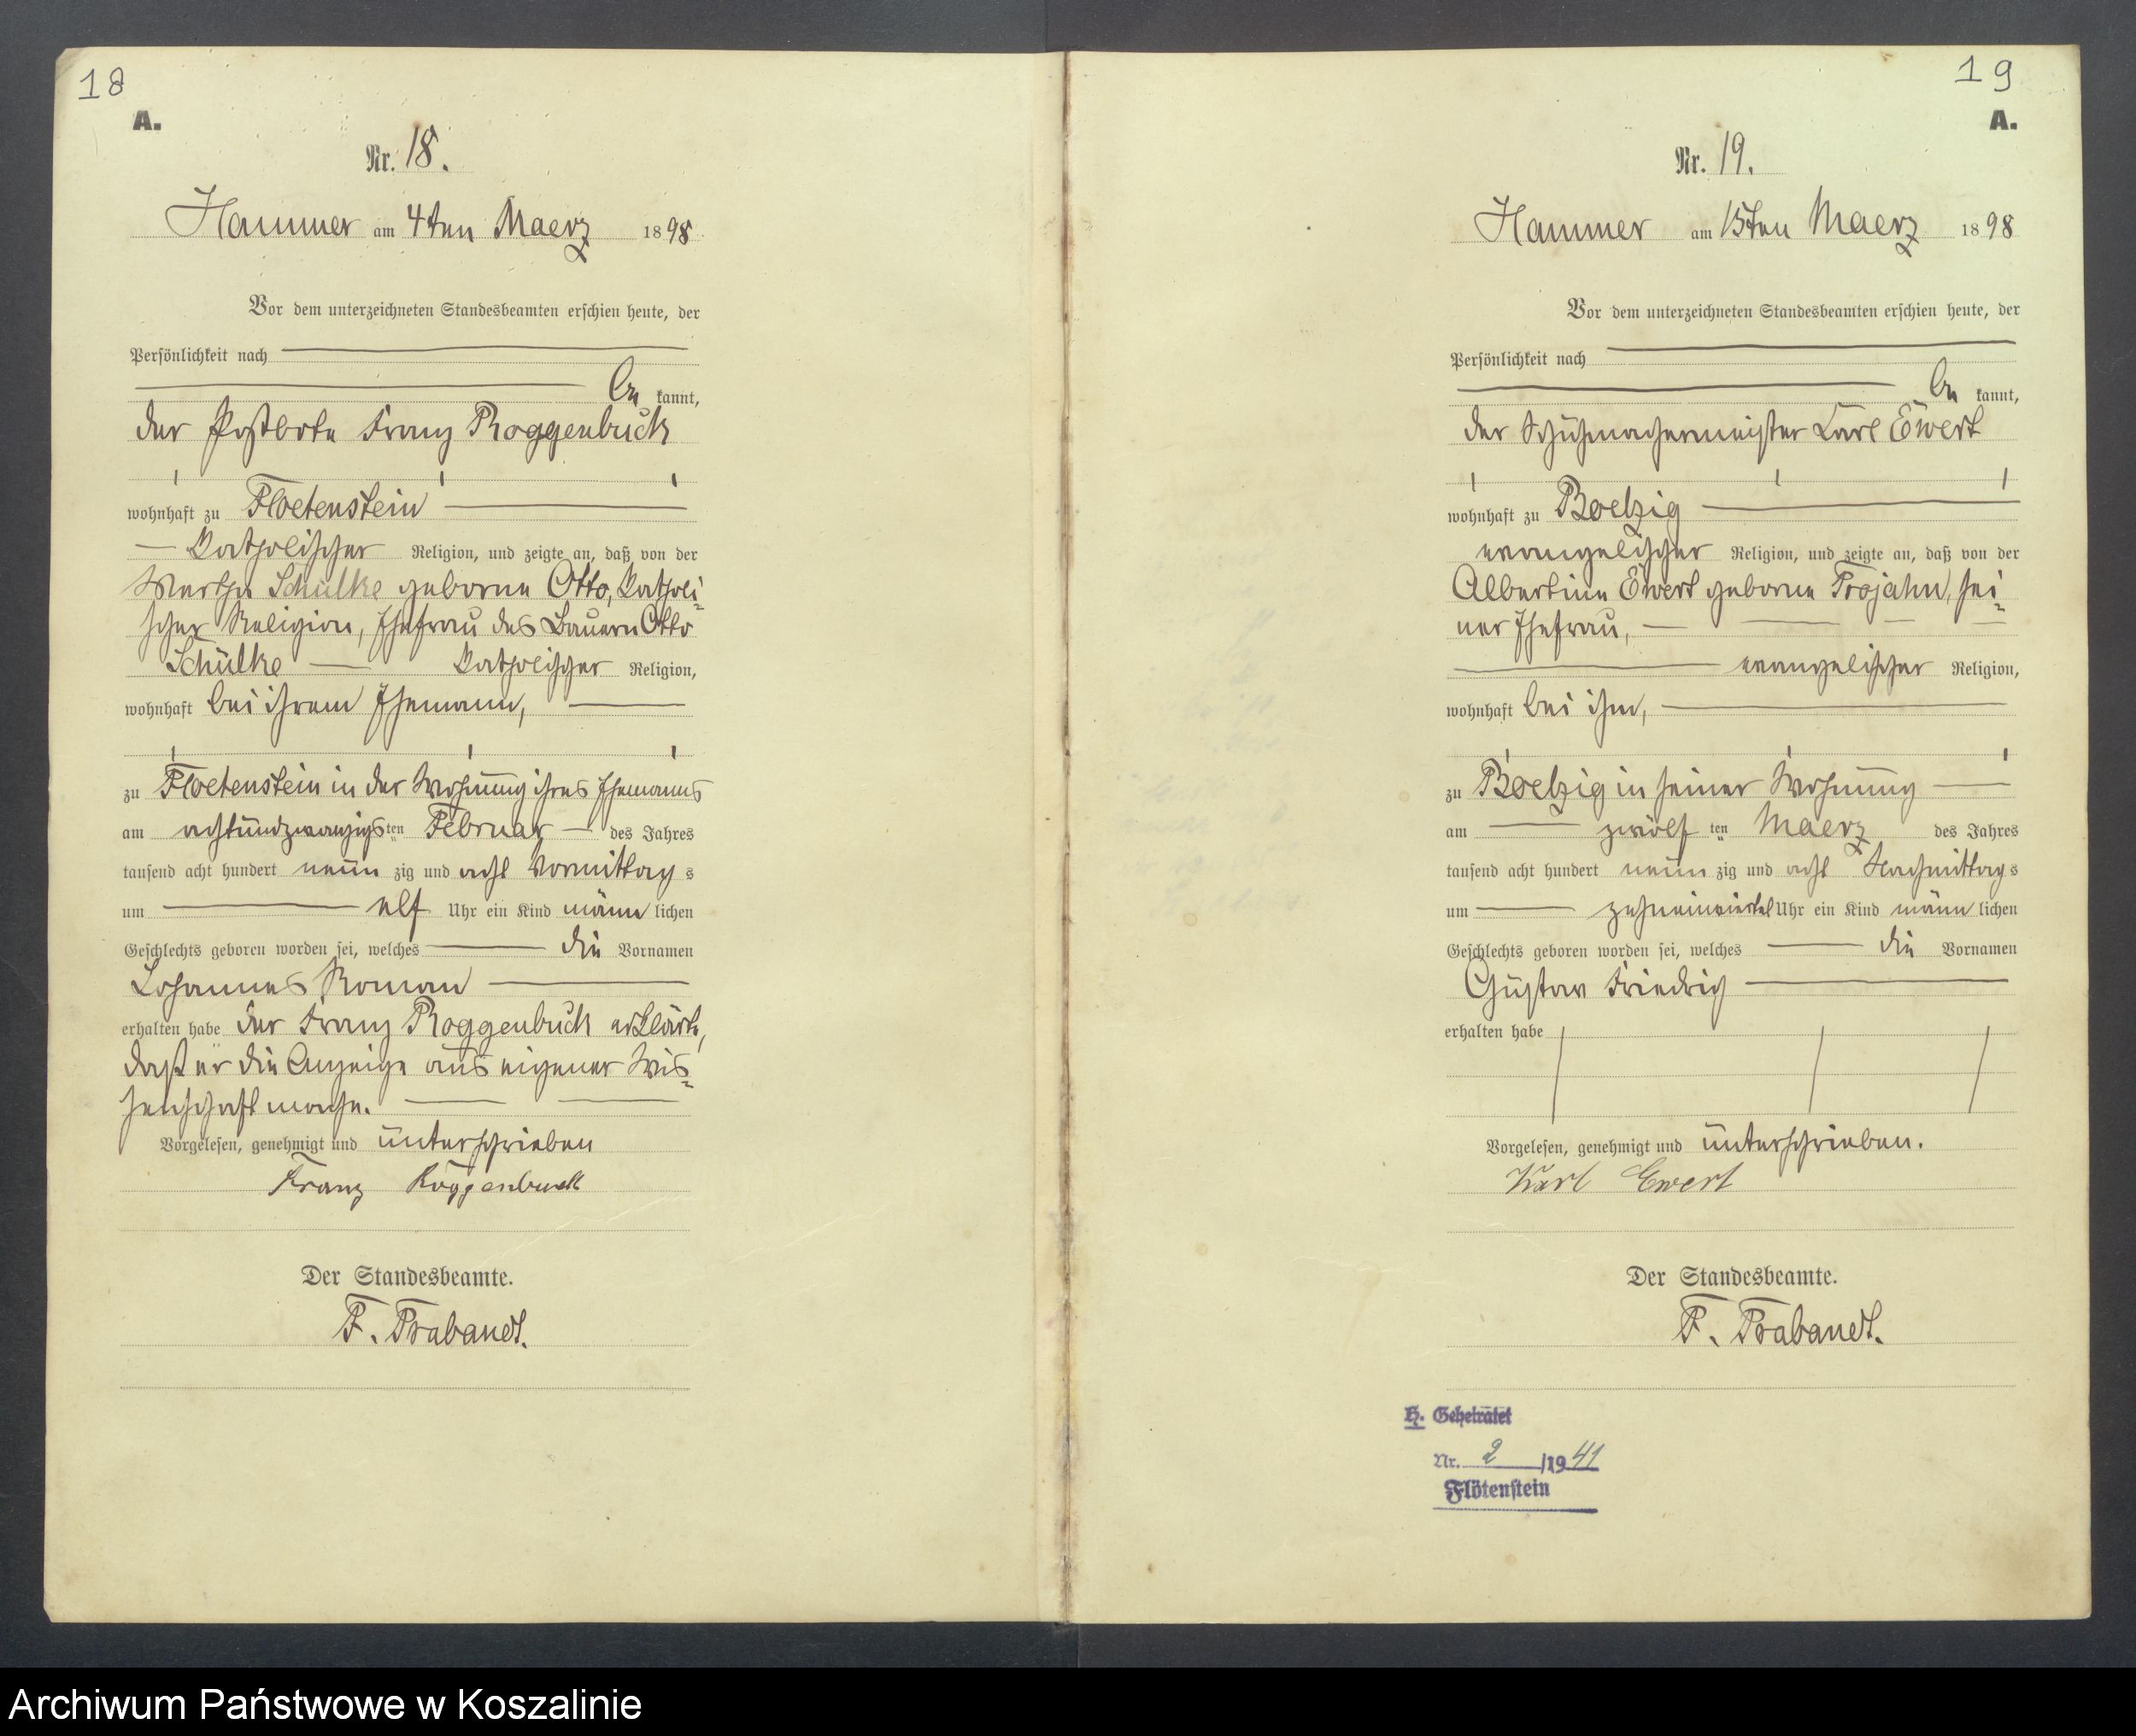 18
A.
Nr. 18.
Hammer am 4ten Maerz 1898
Vor dem unterzeichneten Standesbeamten erschien heute, der
Persönlichkeit nach
be kannt,
der Postbote Franz Roggenbuck
wohnhaft zu Floetenstein
katholischer Religion, und zeigte an, daß von der
Martha Schülke geborne Otto, katholi-
scher Religion, Ehefrau des Bauern Otto
Schülke katholischer Religion,
wohnhaft bei ihrem Ehemann,
zu Floetenstein in der Wohnung ihres Ehemanns
am achtundzwanzigsten Februar des Jahres
tausend acht hundert neun zig und acht Vormittags
um elf Uhr ein Kind männlichen
Geschlechts geboren worden sei, welches die Vornamen
Johannes Roman
erhalten habe der Franz Roggenbuck erklärte,
daß er die Anzeige aus eigener Wis-
senschaft mache.
Vorgelesen, genehmigt und unterschrieben
Franz Roggenbuck
Der Standesbeamte.
F. Trabandt.
19
A.
Nr. 19.
Hammer am 15ten Maerz 1898
Vor dem unterzeichneten Standesbeamten erschien heute, der
Persönlichkeit nach
be kannt,
der Schuhmachermeister Karl Ewert
wohnhaft zu Boelzig
evangelischer Religion, und zeigte an, daß von der
Albertine Ewert geborne Trojahn, sei-
ner Ehefrau,
evangelischer Religion,
wohnhaft bei ihm,
zu Boelzig in seiner Wohnung
am zwölf ten Maerz des Jahres
tausend acht hundert neun zig und acht Nachmittags
um zehneinviertel Uhr ein Kind männlichen
Geschlechts geboren worden sei, welches die Vornamen
Gustav Friedrich
erhalten habe
Vorgelesen, genehmigt und unterschrieben.
Karl Ewert
Der Standesbeamte.
F. Trabandt.
H. Geheiratet
Nr. 2 /1941
Flötenstein
Archiwum Państwowe w Koszalinie